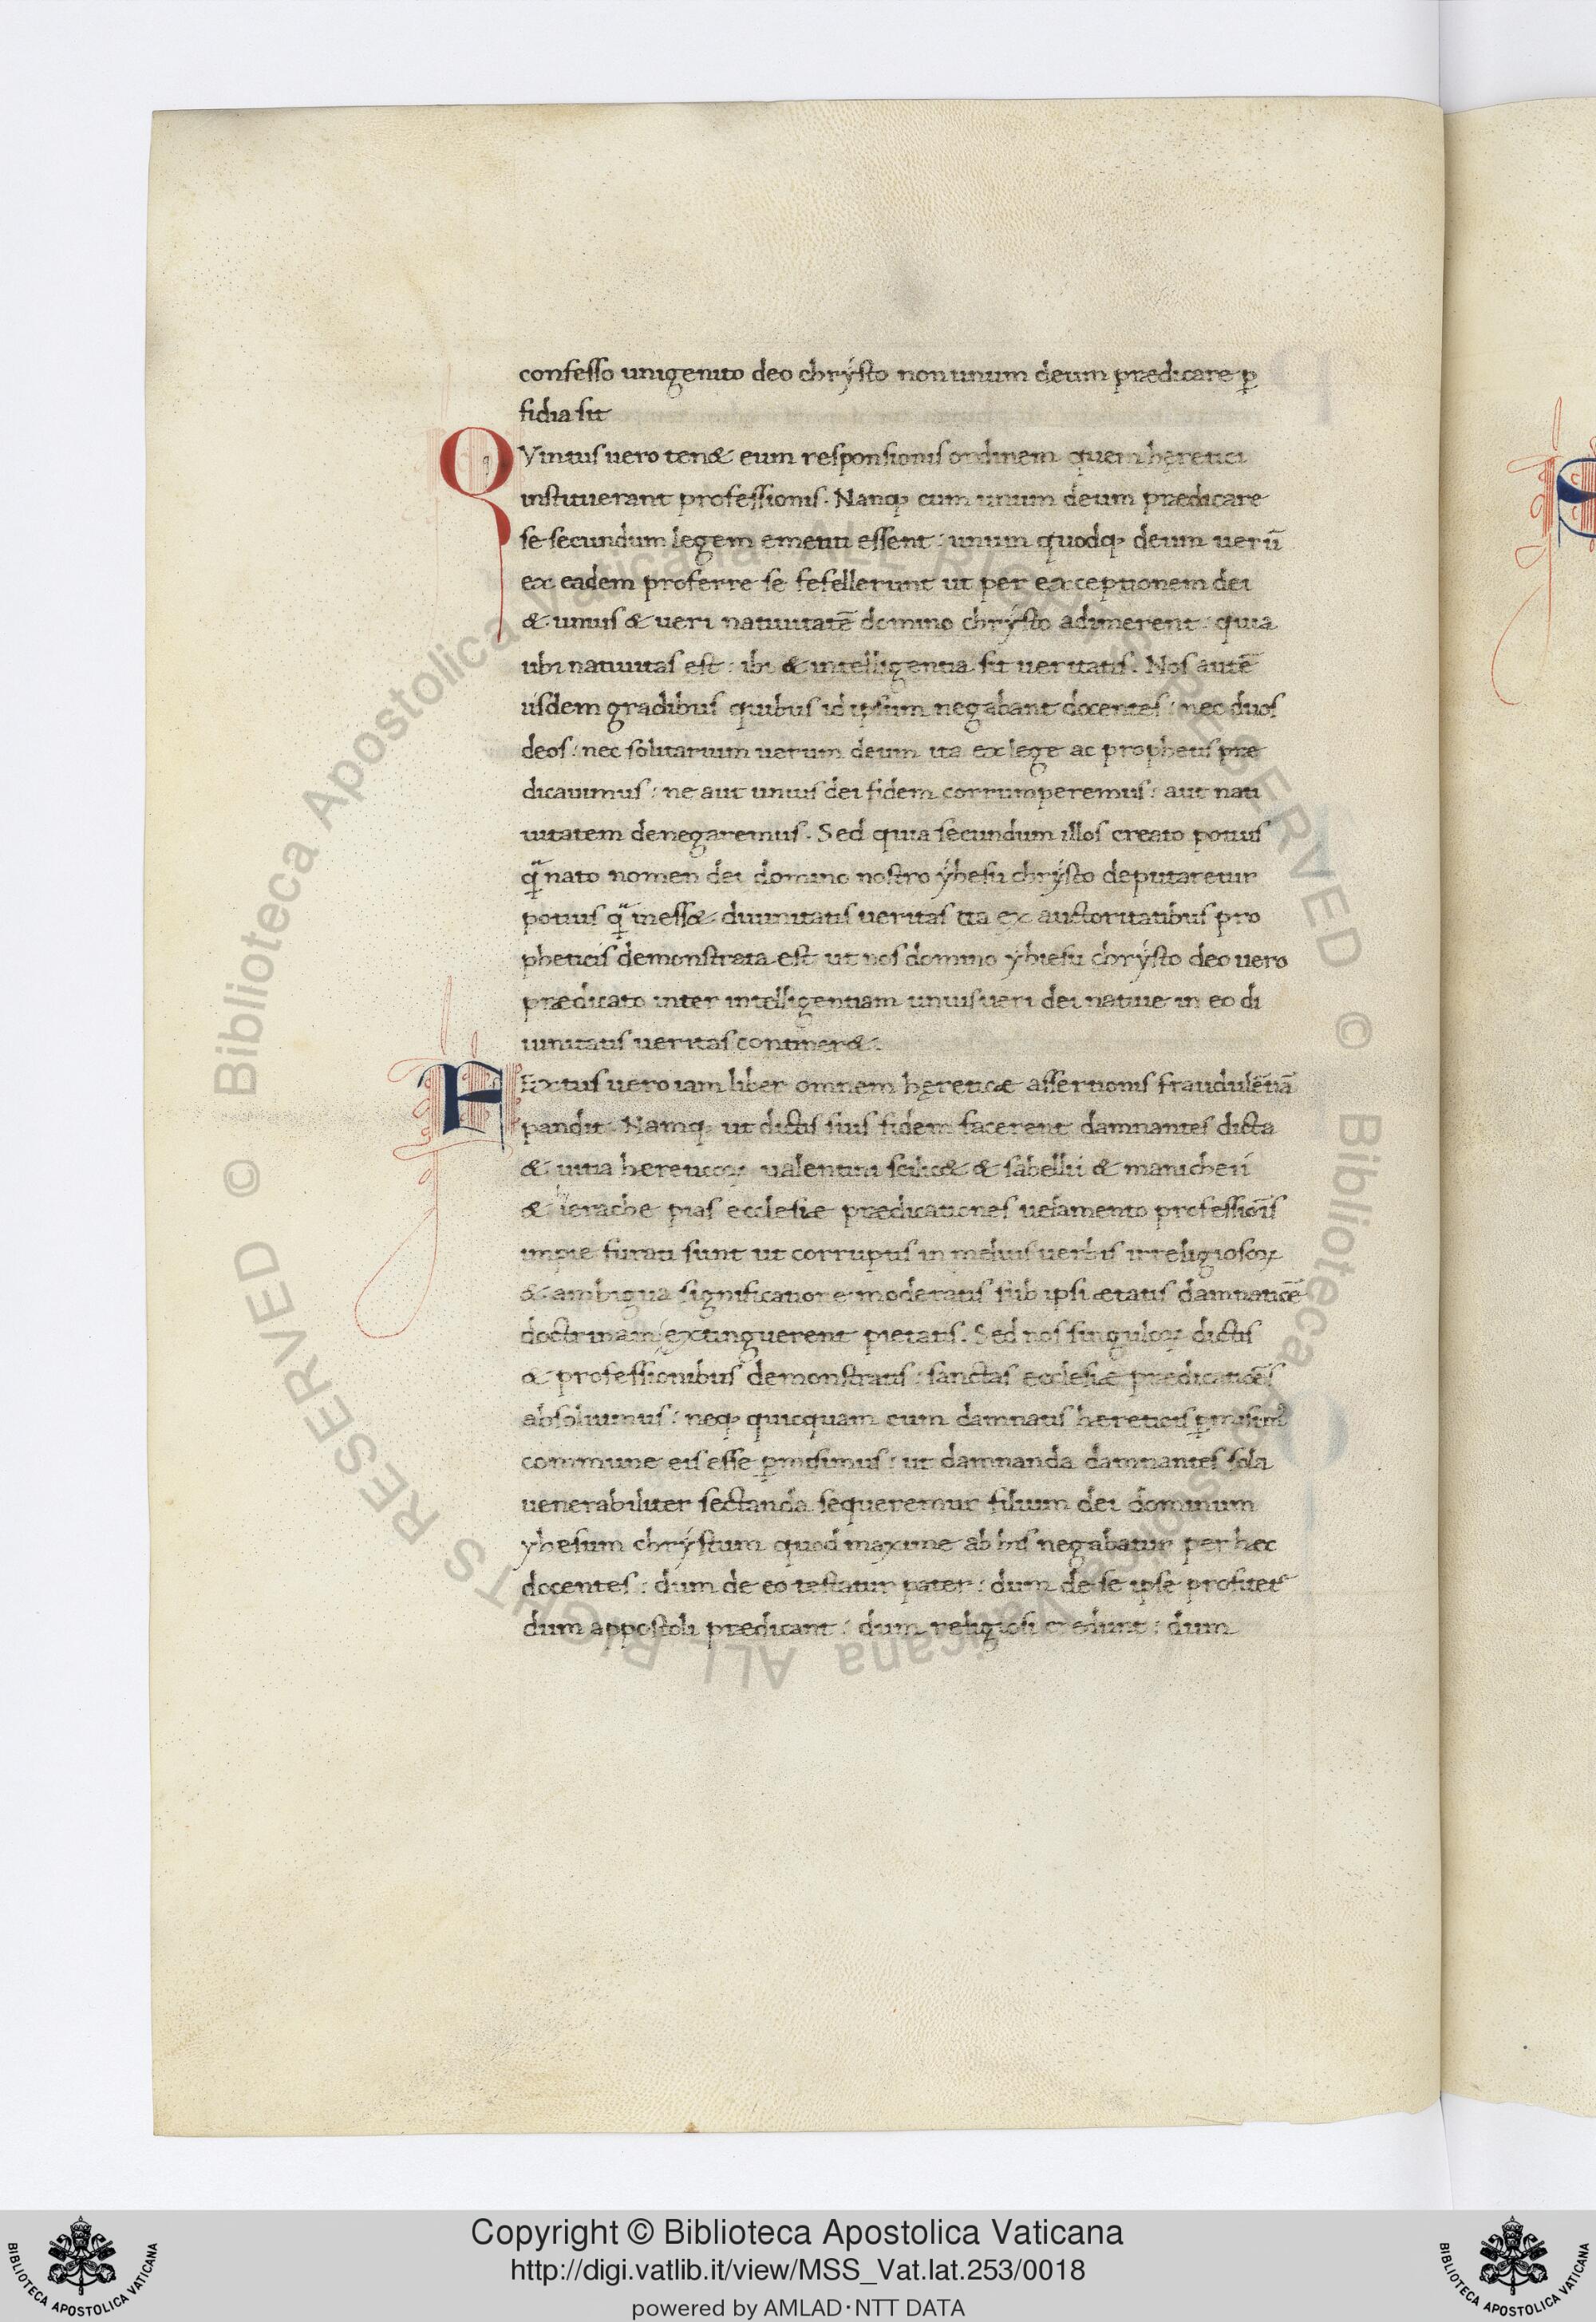 confesso unigenito deo chrẏsto non unum deum prædicare ꝑ
fidia sit
QVintus uero ten& eum responsionis ordinem quem heretici
instituerant professionis. Nanq; cum unum deum prædicare
se secundum legem ementiti essent: unum quodq; deum uerū
ex eadem proferre se fefellerunt ut per exceptionem dei
& unius & ueri natiuitatē domino chrẏsto adimerent: quia
ubi natiuitas est: ibi & intelligentia sit ueritatis. Nos autē
iisdem gradibus quibus id ipsum negabant docentes: nec duos
deos: nec solitarium uerum deum ita ex lege ac prophetis præ
dicauimus: ne aut unius dei fidem corrumperemus: aut nati
uitatem denegaremus. Sed quia secundum illos creato potius
q̄ nato nomen dei domino nostro ẏhesu chrẏsto deputaretur
potius q̄ iness& diuinitatis ueritas ita ex auctoritatibus pro
pheticis demonstrata est ut nos domino ẏhiesu chrẏsto deo uero
prædicato inter intelligentiam unius ueri dei natiue in eo di
uinitatis ueritas continer&.
Extus uero iam liber omnem hereticæ assertionis fraudulētiā
pandit. Namq; ut dictis suis fidem facerent damnantes dicta
& uitia hereticoꝝ ualentini scilic& & sabellii & manicheii
& hierache pias ecclesiæ prædicationes uelamento professiōis
impie furati sunt ut corruptis in melius uerbis irreligiosoꝝ
& ambigua significatione moderatis sub ipsi ætatis damnatiōe
doctrinam extinguerent pietatis. Sed nos singuloꝝ dictis
& professionibus demonstratis: sanctas ecclesiæ prædicatiōes
absoluimus: neq; quicquam cum damnatis hæreticis
commune eis esse ꝑmisimus: ut damnanda damnantes sola
uenerabiliter sectanda sequeremur filium dei dominum
ẏhesum chrẏstum quod maxime ab his negabatur per hæc
docentes: dum de eo testatur pater: dum de se ipse profitet᷑
dum appostoli prædicant: dum religiosi credunt: dum
© Biblioteca Apostolica Vaticana ALL RIGHTS RESERVED © Biblioteca Apostolica Vaticana ALL RIGHTS RESERVED
Copyright © Biblioteca Apostolica Vaticana
http://digi.vatlib.it/view/MSS_Vat.lat.253/0018
powered by AMLAD·NTT DATA
BIBLIOTECA APOSTOLICA VATICANA
BIBLIOTECA APOSTOLICA VATICANA